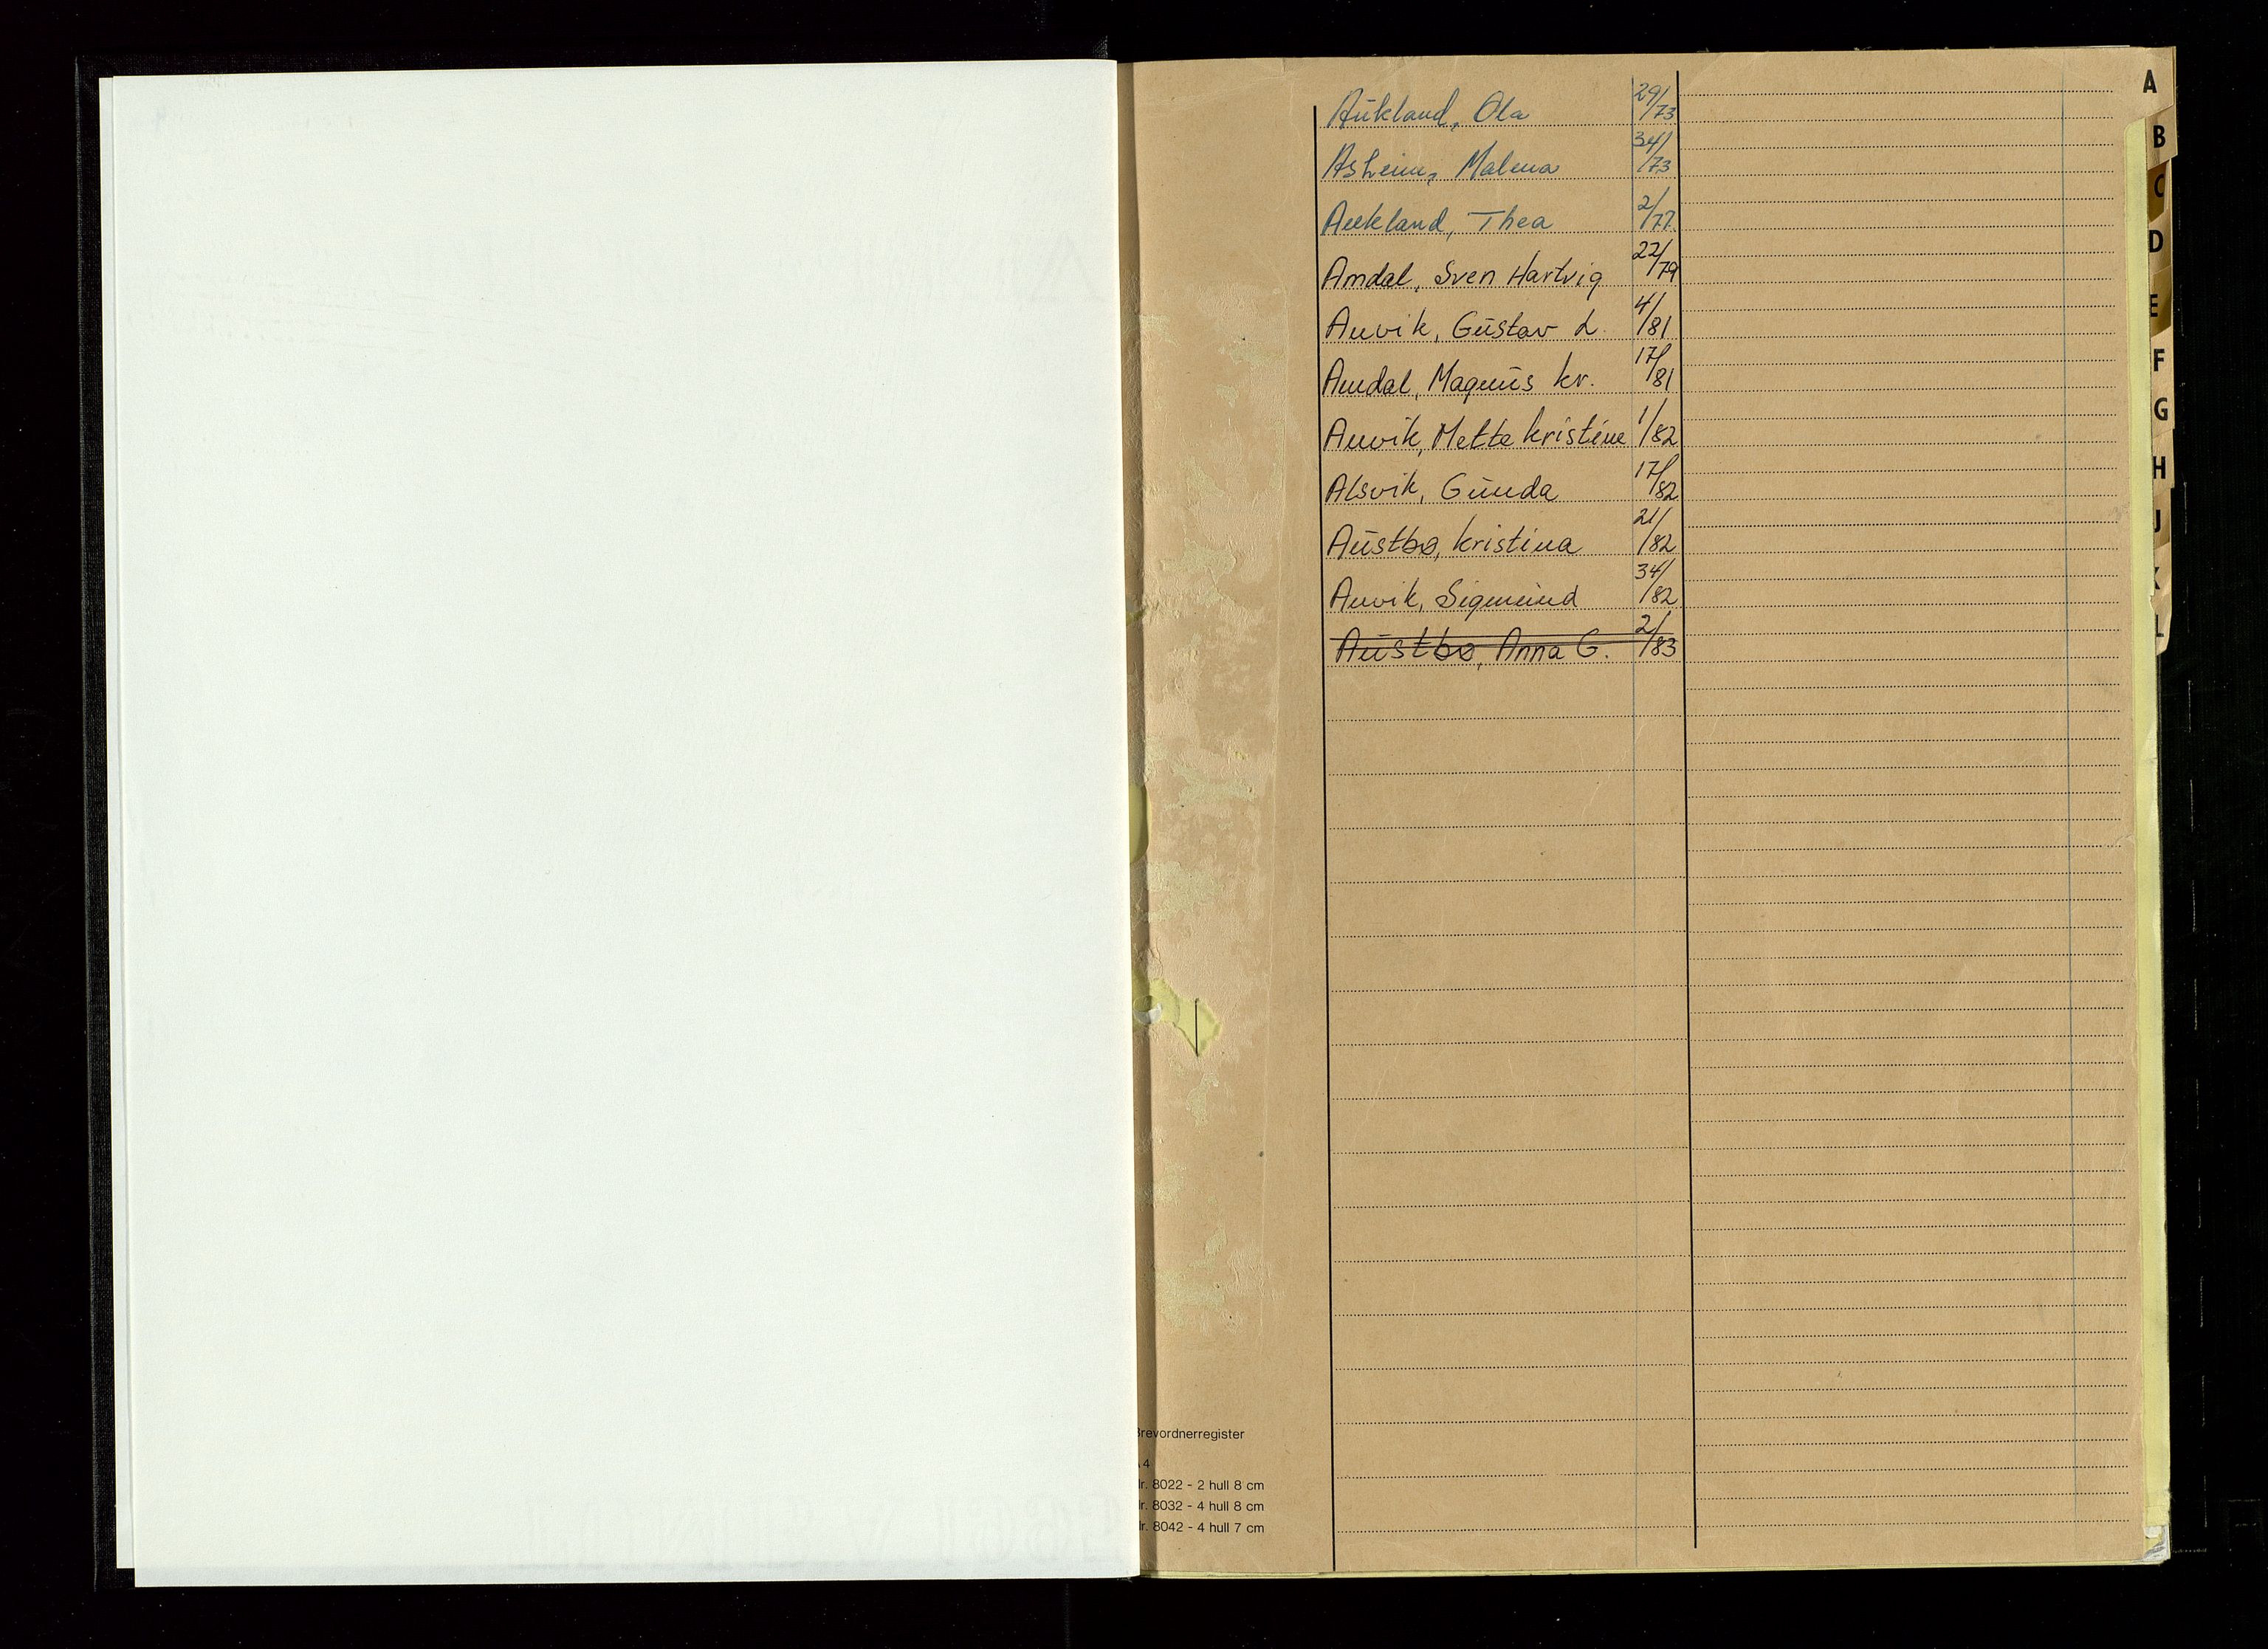 Aukland, Ola 29/73
Asheim, Malena 34/73
Aukland, Thea 2/77
Amdal, Sven Hartvig 22/79
Anvik, Gustav L. 4/81
Amdal, Magnus Kr. 17/81
Anvik, Mette Kristine 1/82
Alsvik, Gunda 17/82
Austbø, Kristina 21/82
Anvik, Sigmund 34/82
Austbø, Anna G. 2/83
A
B
C
D
E
F
G
H
J
K
L
Brevordnerregister
A4
Nr. 8022 - 2 hull 8 cm
Nr. 8032 - 4 hull 8 cm
Nr. 8042 - 4 hull 7 cm